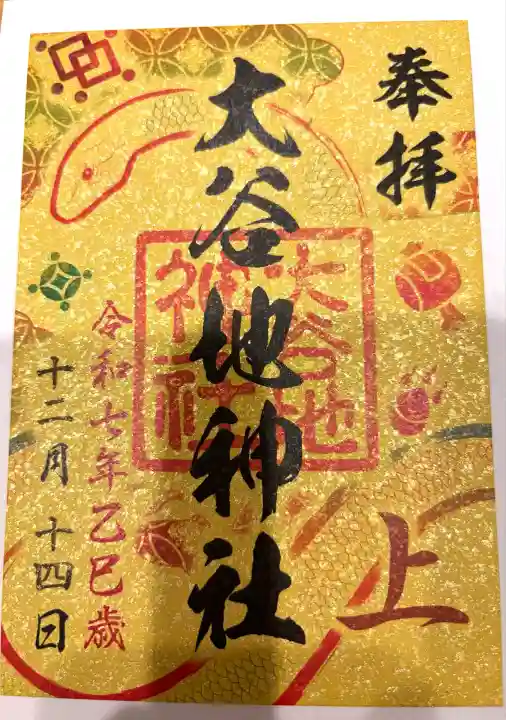 奉拝
大谷地神社
大谷地
神社
上
令和七年乙巳歳
十二月十四日